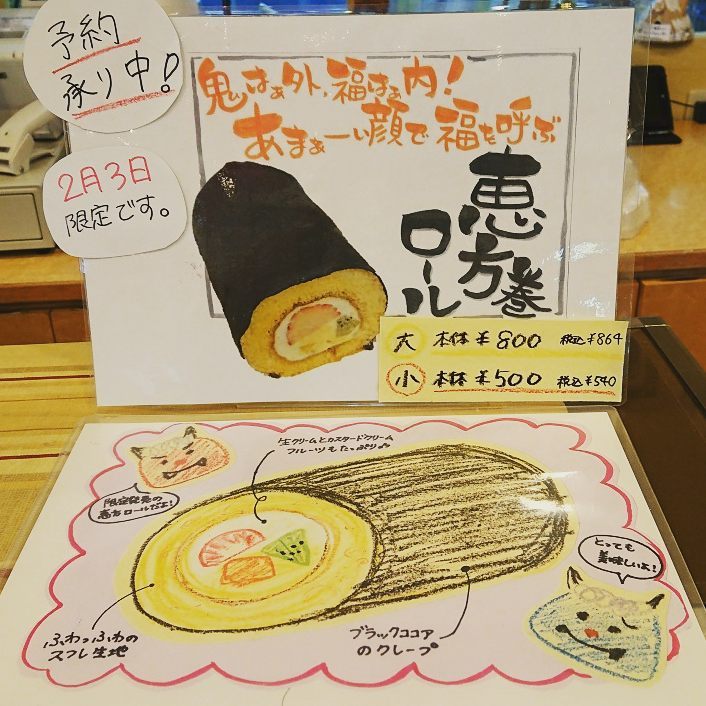 予約
承り中!
2月3日
限定です。
鬼はぁ外、福はぁ内!
あまぁーい顔で福を呼ぶ
恵方巻
ロール
大 本体¥800 税込¥864
小 本体¥500 税込¥540
生クリームとカスタードクリーム
フルーツもたっぷり♪
限定発売の
恵方ロールだよ!
とっても
美味しいよ!
ふわっふわの
スフレ生地
ブラックココア
のクレープ